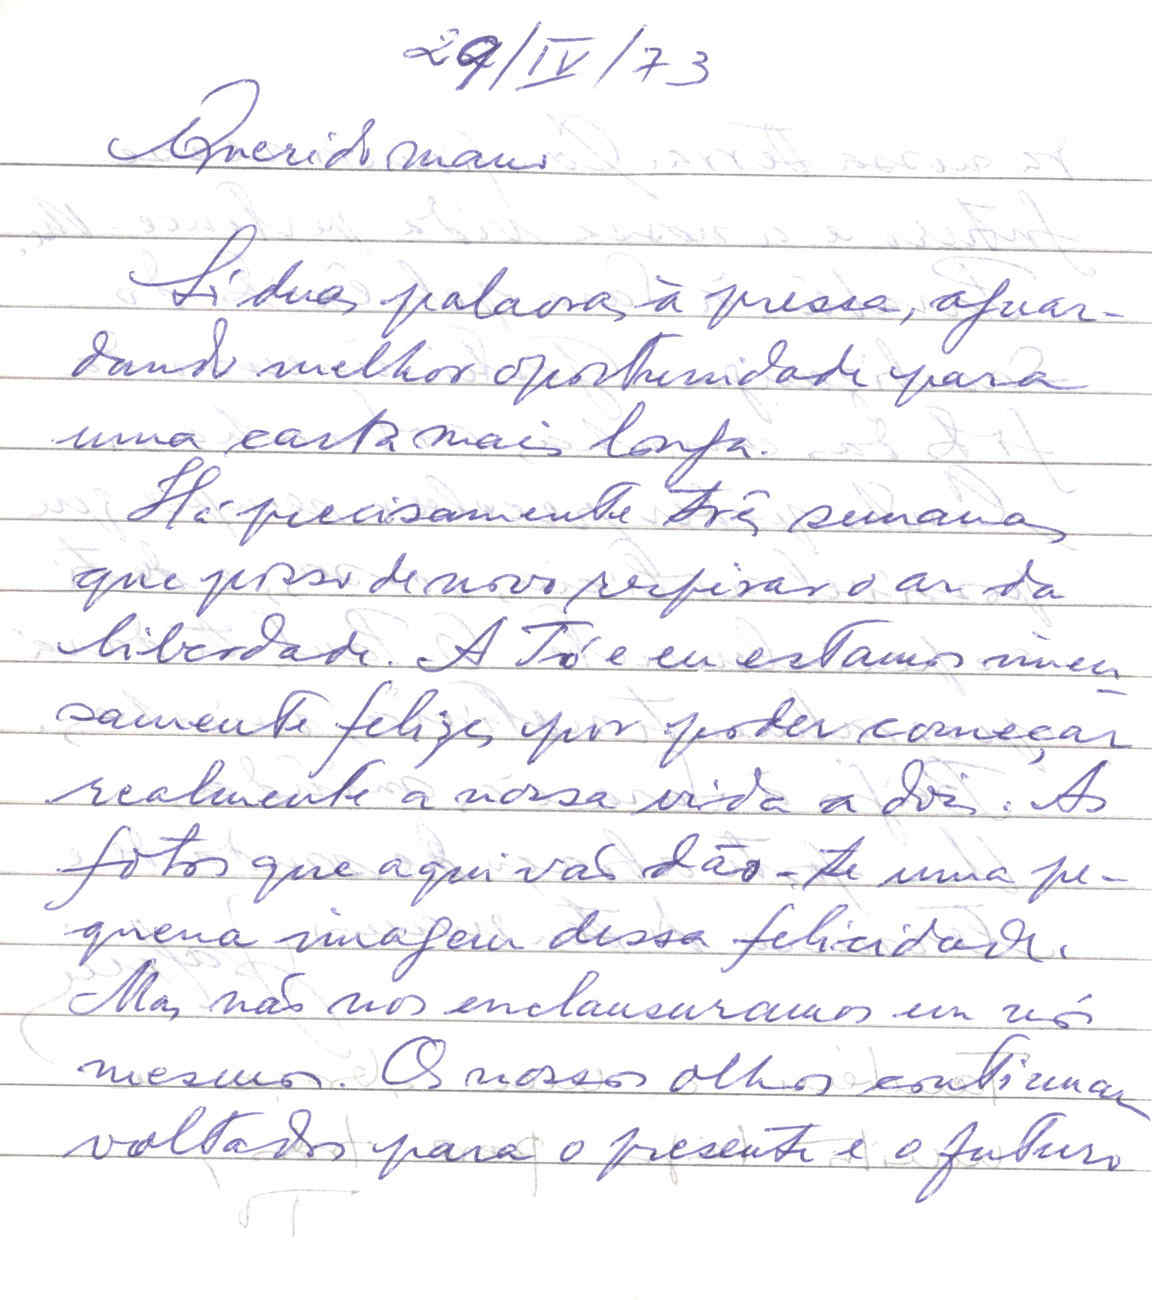 29/IV/73
Querido mano
Só duas palavras à pressa, aguar-
dando melhor oportunidade para
uma carta mais longa.
Há precisamente três semanas
que posso de novo respirar o ar da
liberdade. A Tó e eu estamos imen-
samente felizes por poder começar
realmente a nossa vida a dois. As
fotos que aqui vão dão-te uma pe-
quena imagem dessa felicidade.
Mas não nos enclausuramos em nós
mesmos. Os nossos olhos continuam
voltados para o presente e o futuro